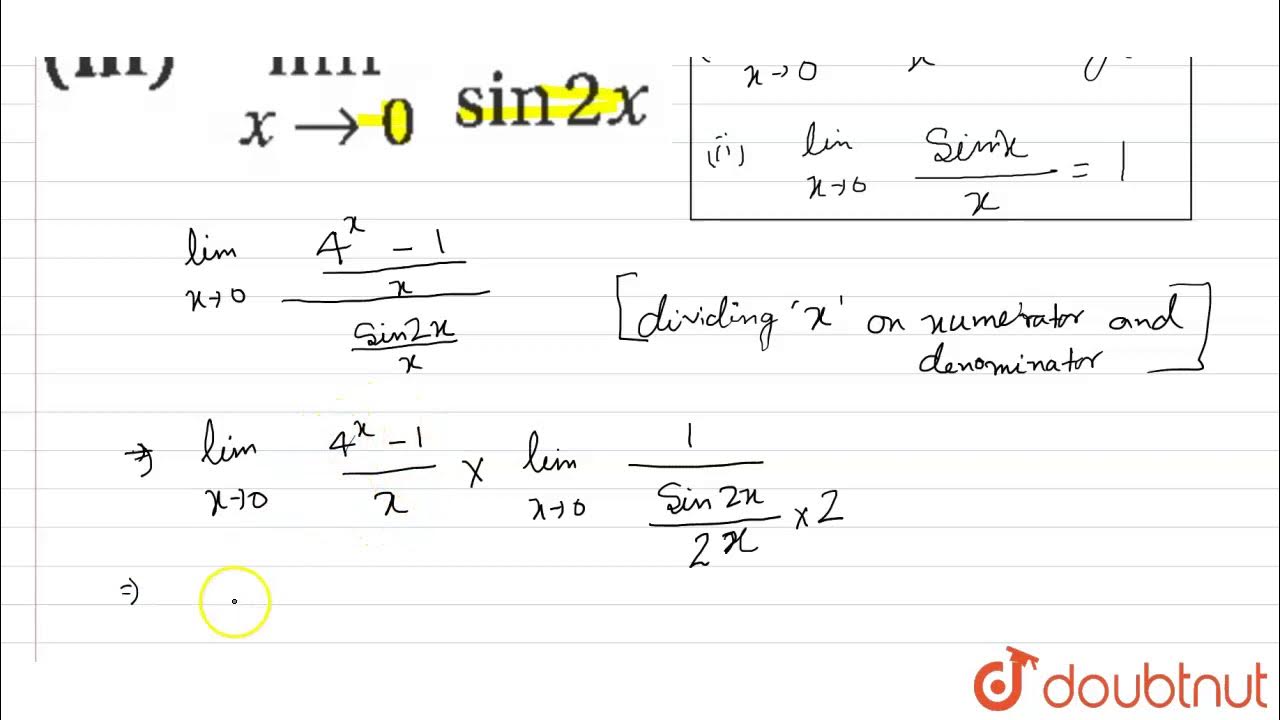 (iii) lim
x → 0 sin 2x
x→0 x
(ii) lim x→0 Sin x / x = 1
lim x→0 ((4^x - 1)/x) / (Sin2x/x)
[dividing 'x' on numerator and
denominator]
⇒ lim x→0 (4^x - 1)/x × lim x→0 1/((Sin 2x / 2x) × 2)
⇒
doubtnut